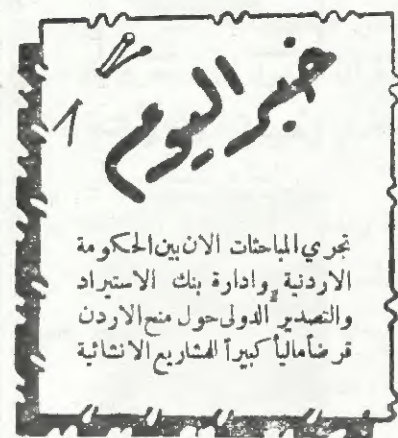 خبر اليوم
1
تجري المباحثات الان بين الحكومة
الاردنية وادارة بنك الاستيراد
والتصدير الدولى حول منح الاردن
قرضاً مالياً كبيراً للمشاريع الانشائية